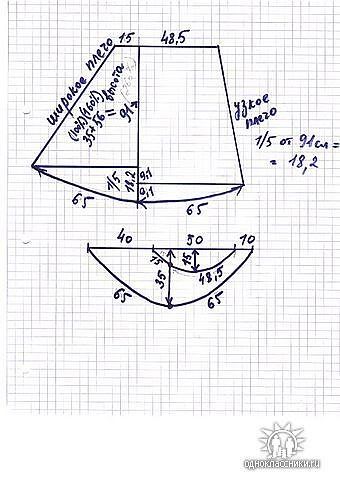 15 48,5
широкое плечо
(100%)(60%)
35+56
=
высота
91
узкое
плечо
1/5 от 91см =
= 18,2
1/5
18,2
9,1
9,1
65
65
40 50 10
15
15
35
48,5
65
65
одноклассники.ru